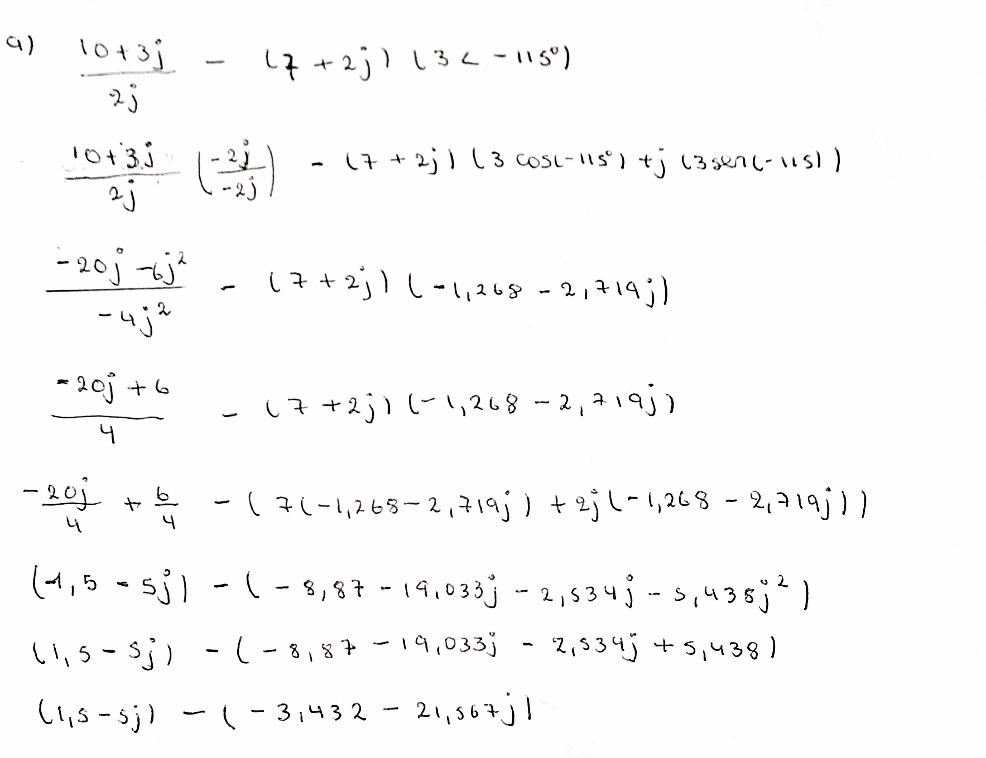 a) (10+3j)/(2j) - (7 + 2j) (3 < -115°)
(10+3j)/(2j) (-2j/-2j) - (7 + 2j) (3 cos(-115°) + j (3sen(-115))
(-20j -6j²)/(-4j²) - (7 + 2j) (-1,268 - 2,719j)
(-20j + 6)/4 - (7 + 2j) (-1,268 - 2,719j)
-20j/4 + 6/4 - (7(-1,268 - 2,719j) + 2j(-1,268 - 2,719j))
(1,5 - 5j) - (-8,87 - 19,033j - 2,534j - 5,438j²)
(1,5 - 5j) - (-8,87 - 19,033j - 2,534j + 5,438)
(1,5 - 5j) - (-3,432 - 21,567j)